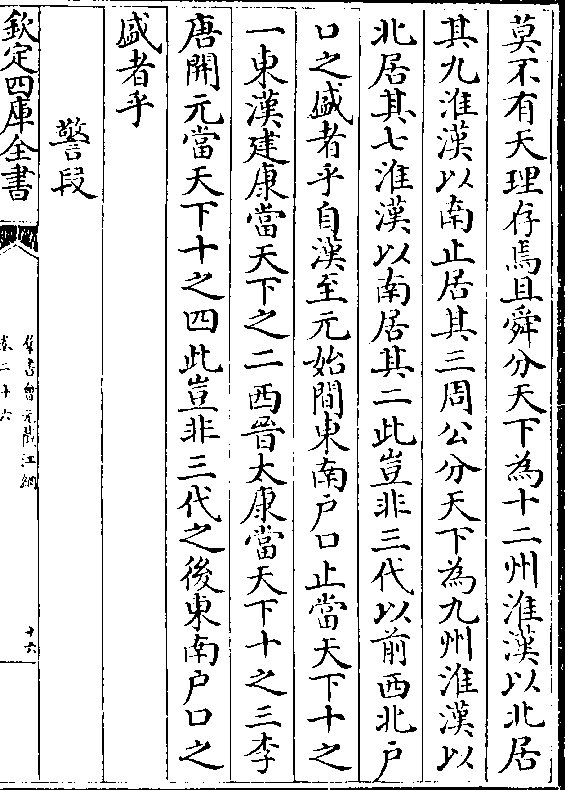 莫不有天理存焉且舜分天下為十二州淮漢以北居
其九淮漢以南止居其三周公分天下為九州淮漢以
北居其七淮漢以南居其二此豈非三代以前西北戶
口之盛者乎自漢至元始間東南戶口止當天下十之
一東漢建康當天下之二西晉太康當天下十之三李
唐開元當天下十之四此豈非三代之後東南戶口之
盛者乎
警段
欽定四庫全書
羣書會元截江網
卷二十六
十六